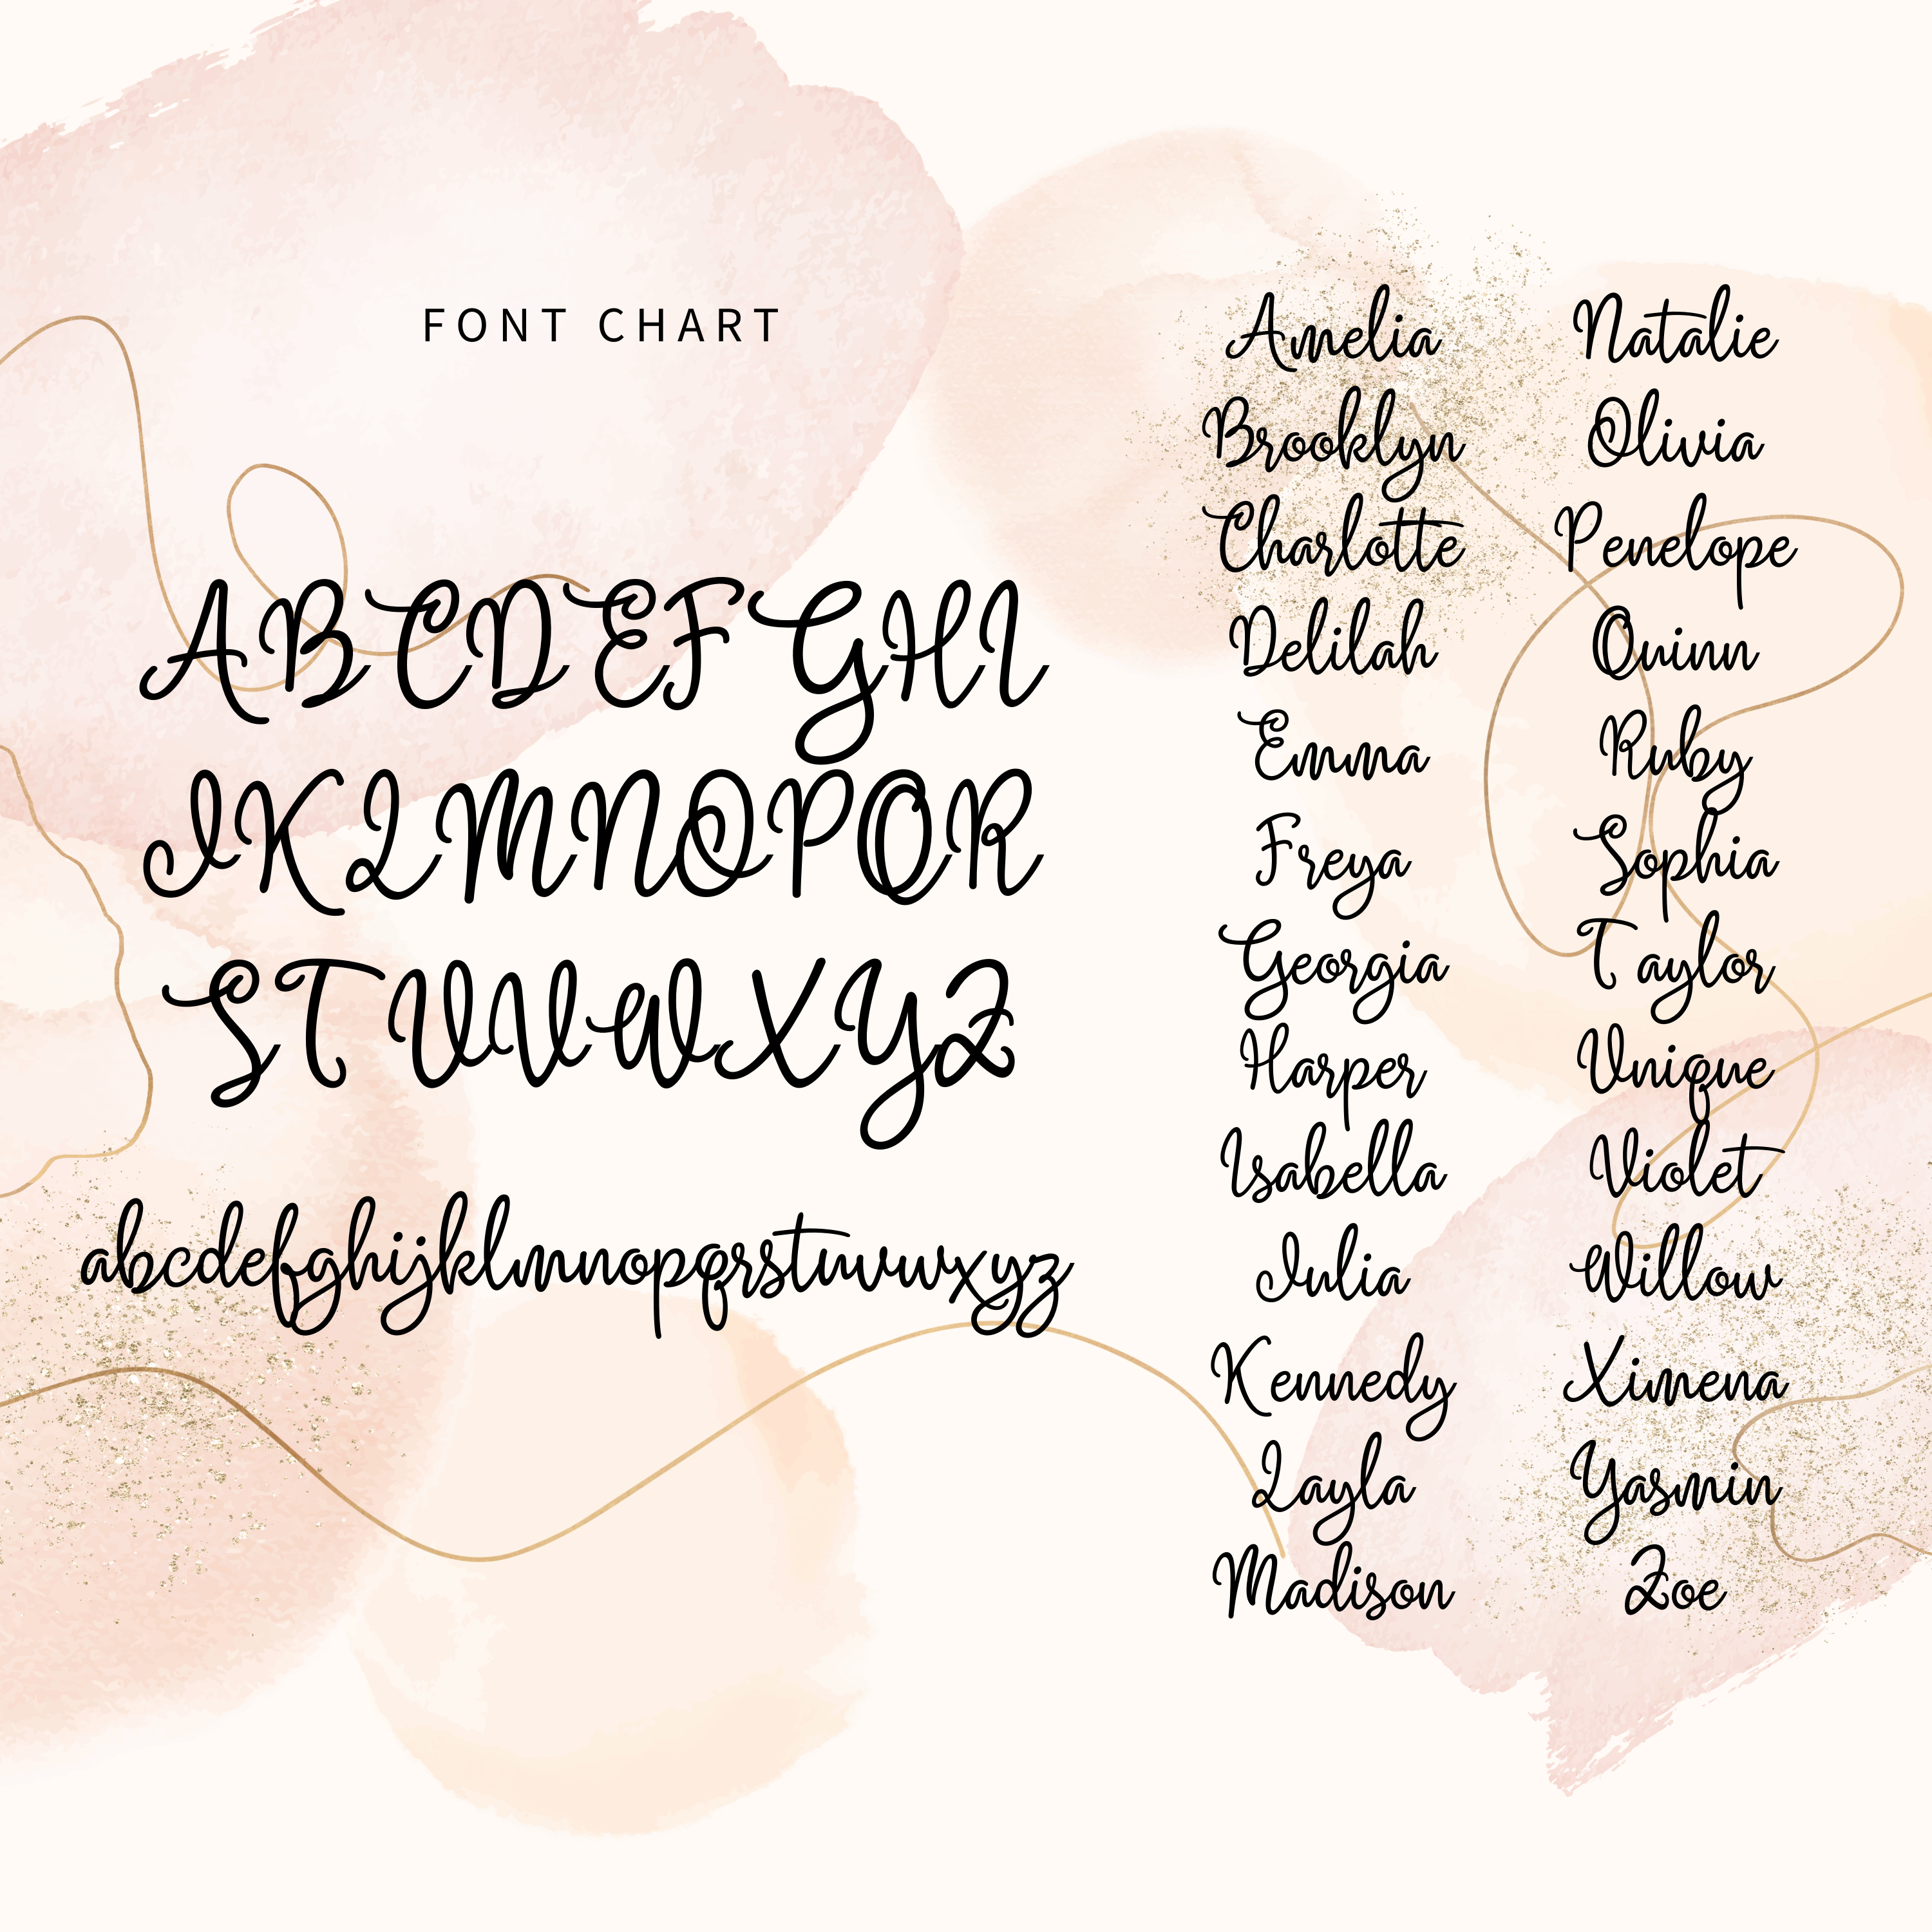 FONT CHART
ABCDEFGHI
JKLMNOPQR
STUVWXYZ
abcdefghijklmnopqrstuvwxyz
Amelia
Brooklyn
Charlotte
Delilah
Emma
Freya
Georgia
Harper
Isabella
Julia
Kennedy
Layla
Madison
Natalie
Olivia
Penelope
Quinn
Ruby
Sophia
Taylor
Unique
Violet
Willow
Ximena
Yasmin
Zoe